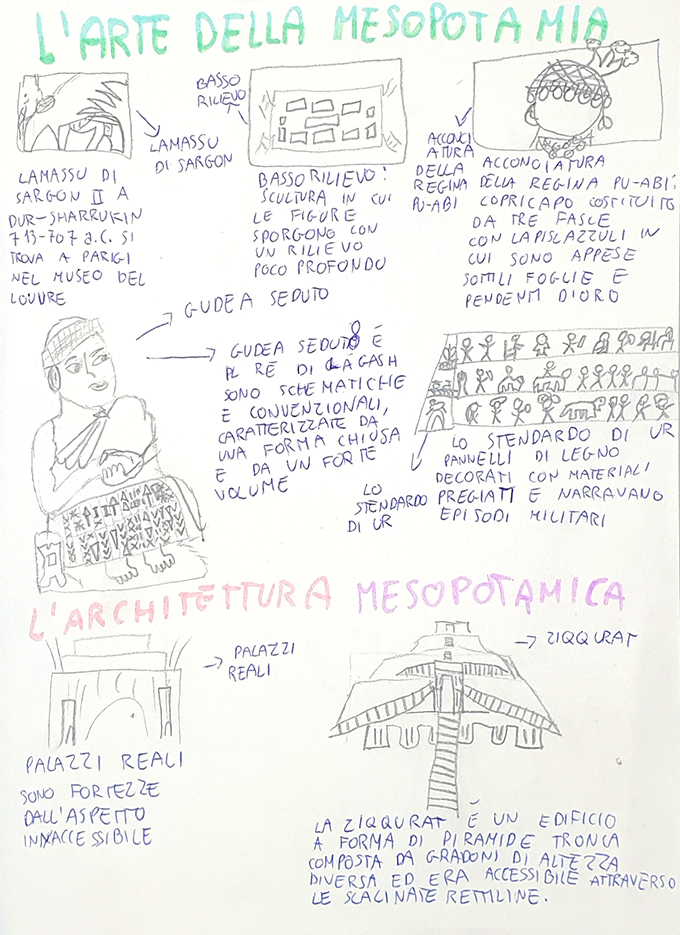 L'ARTE DELLA MESOPOTAMIA
LAMASSU
DI SARGON
LAMASSU DI
SARGON II A
DUR-SHARRUKIN
713-707 a.C. SI
TROVA A PARIGI
NEL MUSEO DEL
LOUVRE
BASSO
RILIEVO
BASSO RILIEVO:
SCULTURA IN CUI
LE FIGURE
SPORGONO CON
UN RILIEVO
POCO PROFONDO
ACCONCI
ATURA
DELLA
REGINA
PU-ABI
ACCONCIATURA
DELLA REGINA PU-ABI:
COPRICAPO COSTITUITO
DA TRE FASCE
CON LAPISLAZZULI IN
CUI SONO APPESE
SOTTILI FOGLIE E
PENDENTI D'ORO
GUDEA SEDUTO
GUDEA SEDUTO È
IL RE DI LAGASH
SONO SCHEMATICHE
E CONVENZIONALI,
CARATTERIZZATE DA
UNA FORMA CHIUSA
E DA UN FORTE
VOLUME
LO
STENDARDO
DI UR
LO STENDARDO DI UR
PANNELLI DI LEGNO
DECORATI CON MATERIALI
PREGIATI E NARRAVANO
EPISODI MILITARI
L'ARCHITETTURA MESOPOTAMICA
PALAZZI
REALI
PALAZZI REALI
SONO FORTEZZE
DALL'ASPETTO
INACCESSIBILE
ZIQQURAT
LA ZIQQURAT É UN EDIFICIO
A FORMA DI PIRAMIDE TRONCA
COMPOSTA DA GRADONI DI ALTEZZA
DIVERSA ED ERA ACCESSIBILE ATTRAVERSO
LE SCALINATE RETTILINE.